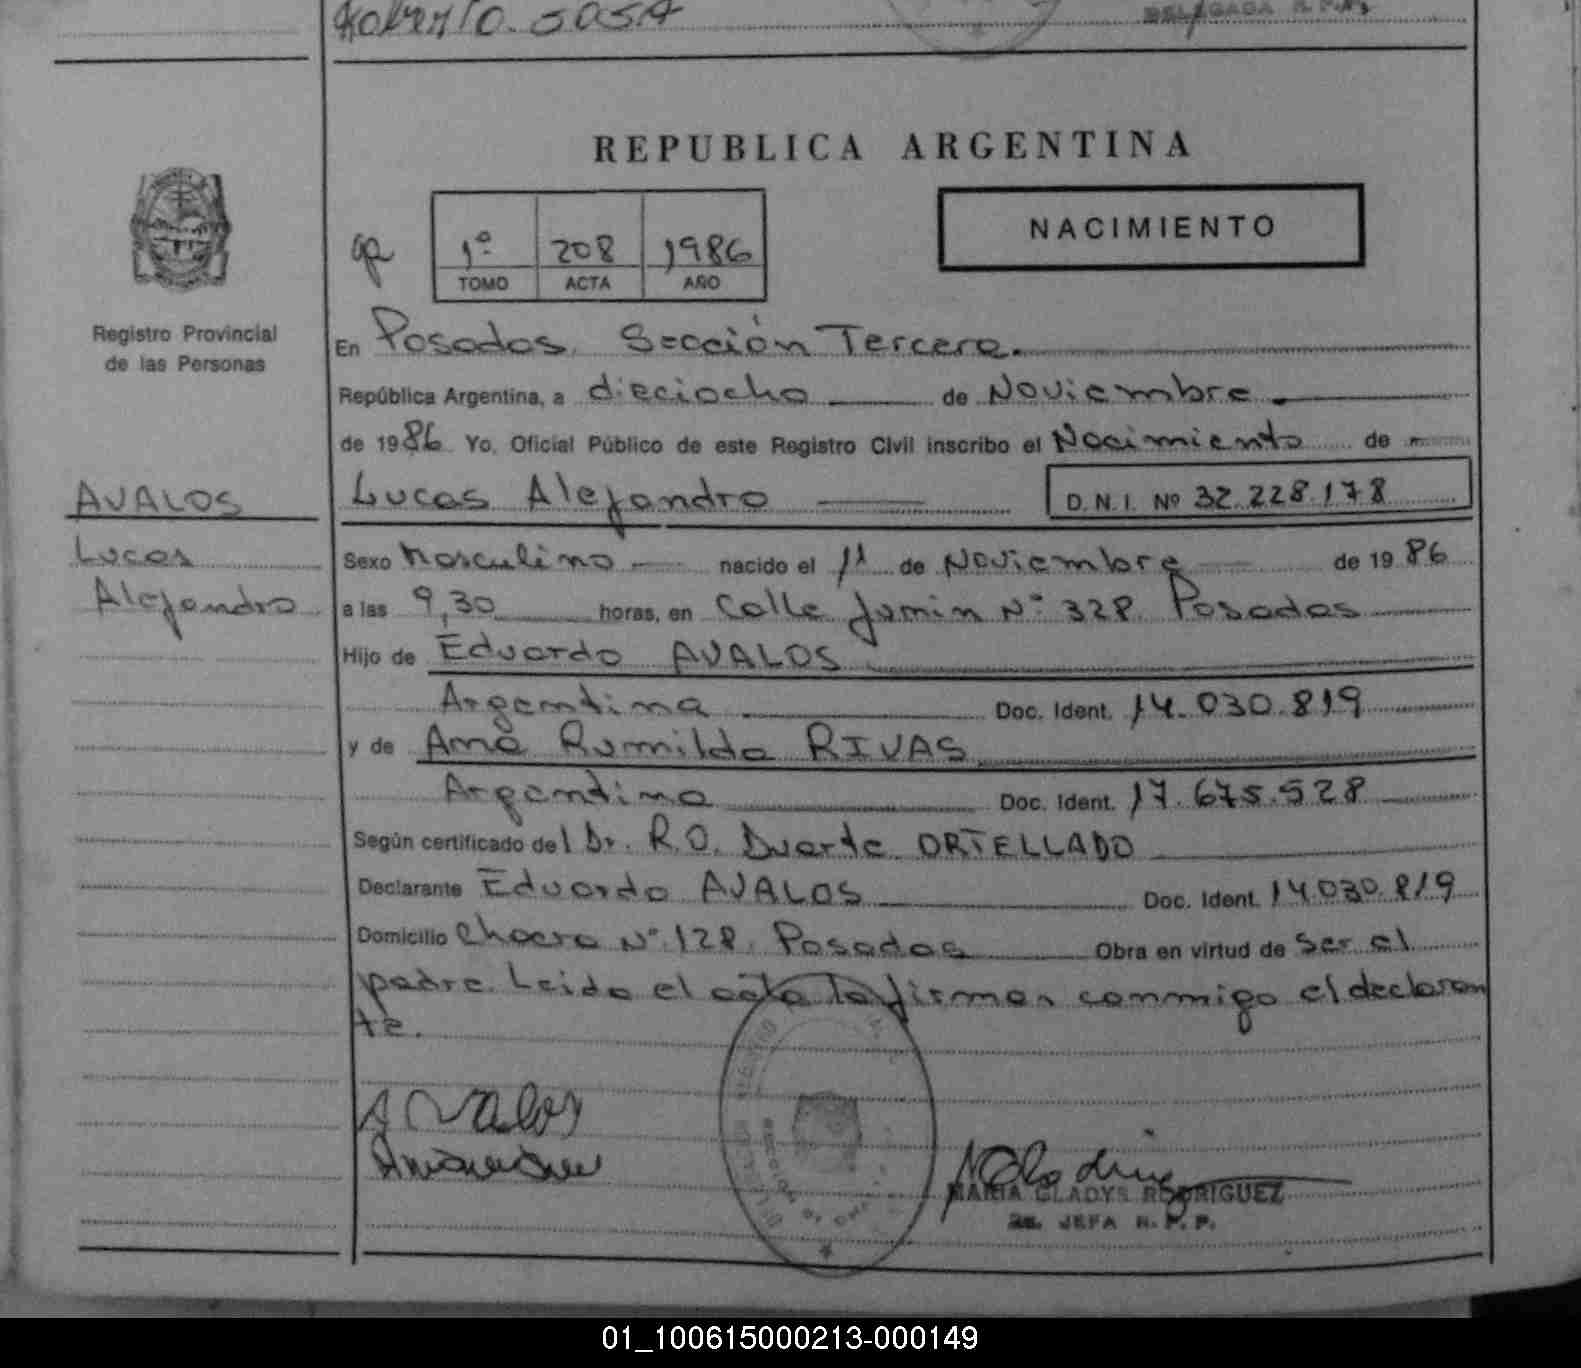 Roberto. SOSA
DELEGADA R.P.P.
REPUBLICA ARGENTINA
NACIMIENTO
1º 208 1986
TOMO ACTA AÑO
Registro Provincial
de las Personas
En Posadas, Sección Tercera.
República Argentina, a dieciocho de Noviembre
de 1986 Yo, Oficial Público de este Registro Civil inscribo el Nacimiento de
AVALOS
Lucas Alejandro
D.N.I. Nº 32.228.178
Lucas
Alejandro
Sexo Masculino nacido el 11 de Noviembre de 1986
a las 9,30 horas, en Calle Junin Nº 328 Posadas
Hijo de Eduardo AVALOS
Argentina Doc. Ident. 14.030.819
y de Ana Rumilda RIVAS
Argentina Doc. Ident. 17.675.528
Según certificado del Dr. R.O. Duarte ORTELLADO
Declarante Eduardo AVALOS Doc. Ident. 14.030.819
Domicilio Chacra Nº 128, Posadas Obra en virtud de Ser el
padre. Leida el acta la firman conmigo el declaran
te.
Avalos
MARIA GLADYS RODRIGUEZ
JEFA R.P.P.
01_100615000213-000149